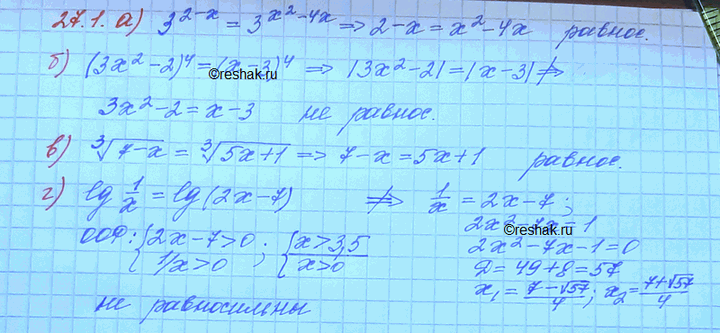 27.1. а) 3^{2-x} = 3^{x^2-4x} ⇒ 2-x = x^2-4x равнос.
б) (3x^2-2)^4 = (x-3)^4 ⇒ |3x^2-2| = |x-3| ⇏
©reshak.ru
3x^2-2 = x-3 не равнос.
в) ∛(7-x) = ∛(5x+1) ⇒ 7-x = 5x+1 равнос.
г) lg 1/x = lg(2x-7) ⇏ 1/x = 2x-7;
2x^2-7x=1
ООФ: {2x-7>0; {x>3,5
2x^2-7x-1=0
1/x>0 x>0
©reshak.ru
D = 49+8=57
x_1 = (7-√57)/4; x_2 = (7+√57)/4
не равносильны